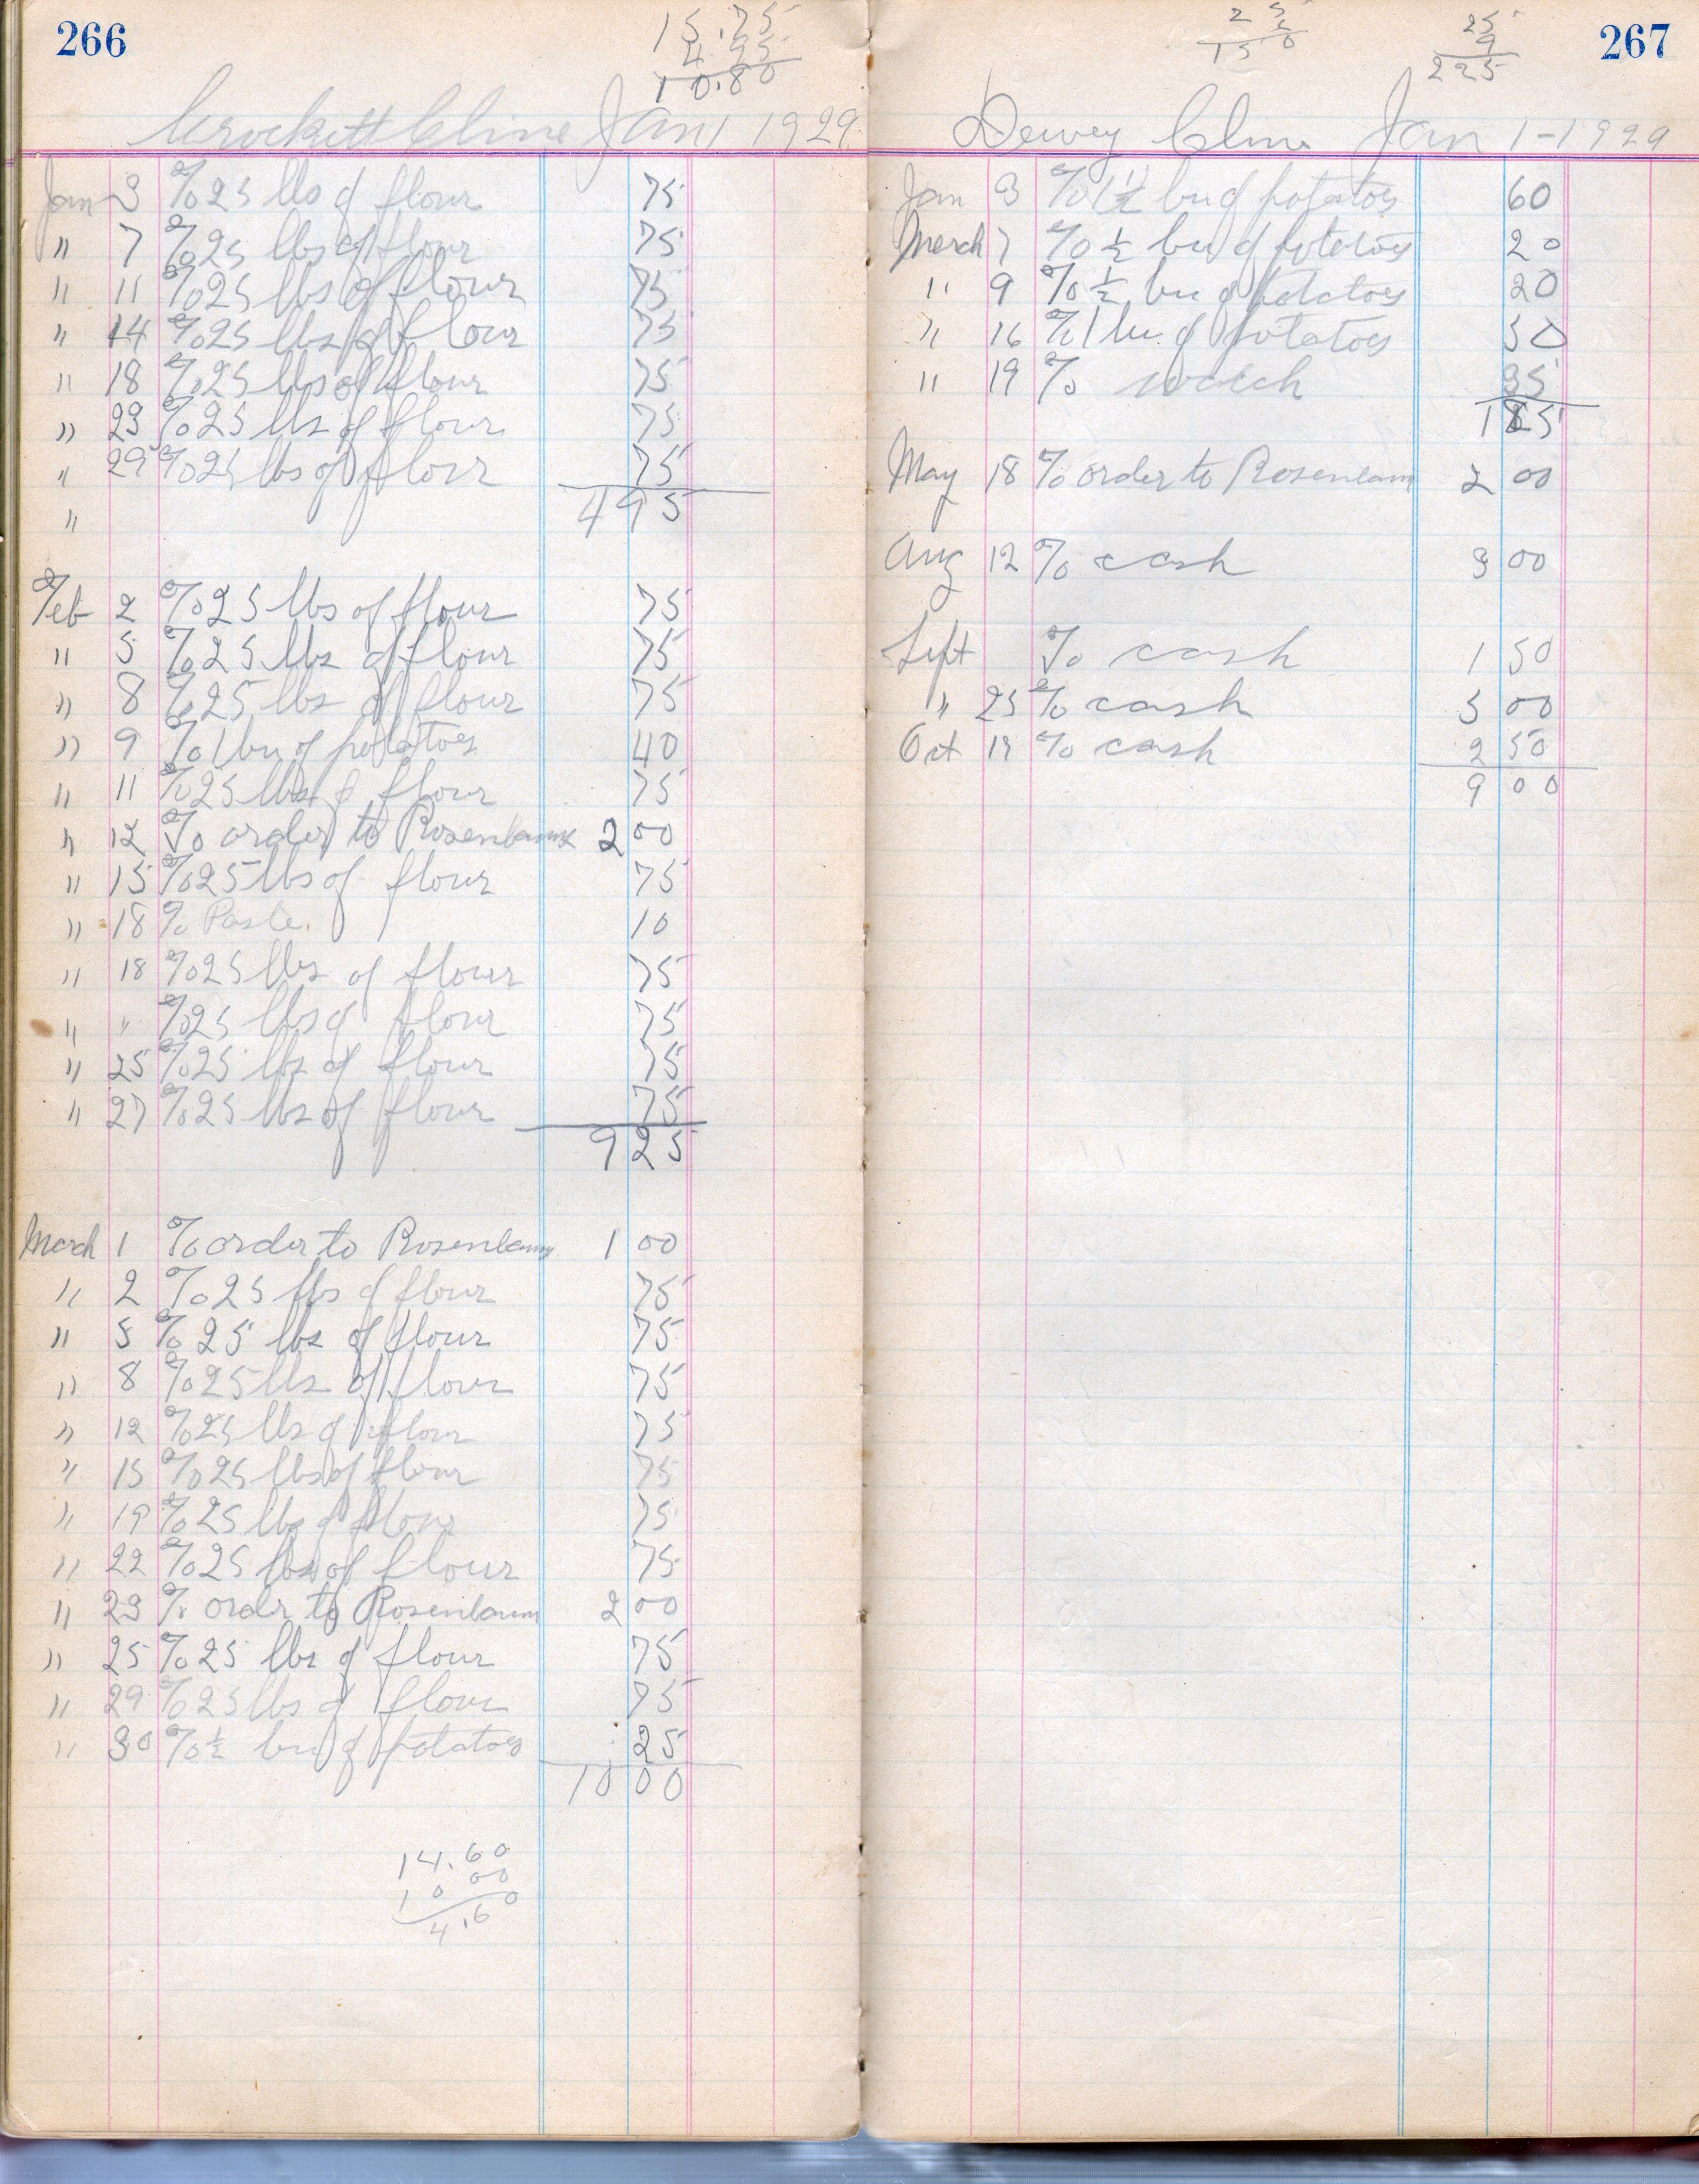 266
15.75
4 95
10.80
Crockett Cline Jan 1 1929
Jan 3 % 25 lbs of flour 75
" 7 % 25 lbs of flour 75
" 11 % 25 lbs of flour 75
" 14 % 25 lbs of flour 75
" 18 % 25 lbs of flour 75
" 23 % 25 lbs of flour 75
" 29 % 25 lbs of flour 75
" 4 95
Feb 2 % 25 lbs of flour 75
" 5 % 25 lbs of flour 75
" 8 % 25 lbs of flour 75
" 9 % 1 bu of potatoes 40
" 11 % 25 lbs of flour 75
" 12 % order to Rosenbaum 2 00
" 15 % 25 lbs of flour 75
" 18 % Paste. 10
" 18 % 25 lbs of flour 75
" " % 25 lbs of flour 75
" 25 % 25 lbs of flour 75
" 27 % 25 lbs of flour 75
9 25
March 1 % order to Rosenbaum 1 00
" 2 % 25 lbs of flour 75
" 5 % 25 lbs of flour 75
" 8 % 25 lbs of flour 75
" 12 % 25 lbs of flour 75
" 15 % 25 lbs of flour 75
" 19 % 25 lbs of flour 75
" 22 % 25 lbs of flour 75
" 23 % order to Rosenbaum 2 00
" 25 % 25 lbs of flour 75
" 29 % 25 lbs of flour 75
" 30 % ½ bu of potatoes 25
10 00
14.60
10 00
4.60
267
25
6
150
25
9
225
Dewey Cline Jan 1-1929
Jan 3 % 1½ bu of potatoes 60
March 7 % ½ bu of potatoes 20
" 9 % ½ bu of potatoes 20
" 16 % 1 bu. of potatoes 50
" 19 % watch 35
1 85
May 18 % order to Rosenbaum 2 00
Aug 12 % cash 3 00
Sept % cash 1 50
" 25 % cash 5 00
Oct 19 % cash 2 50
9 00